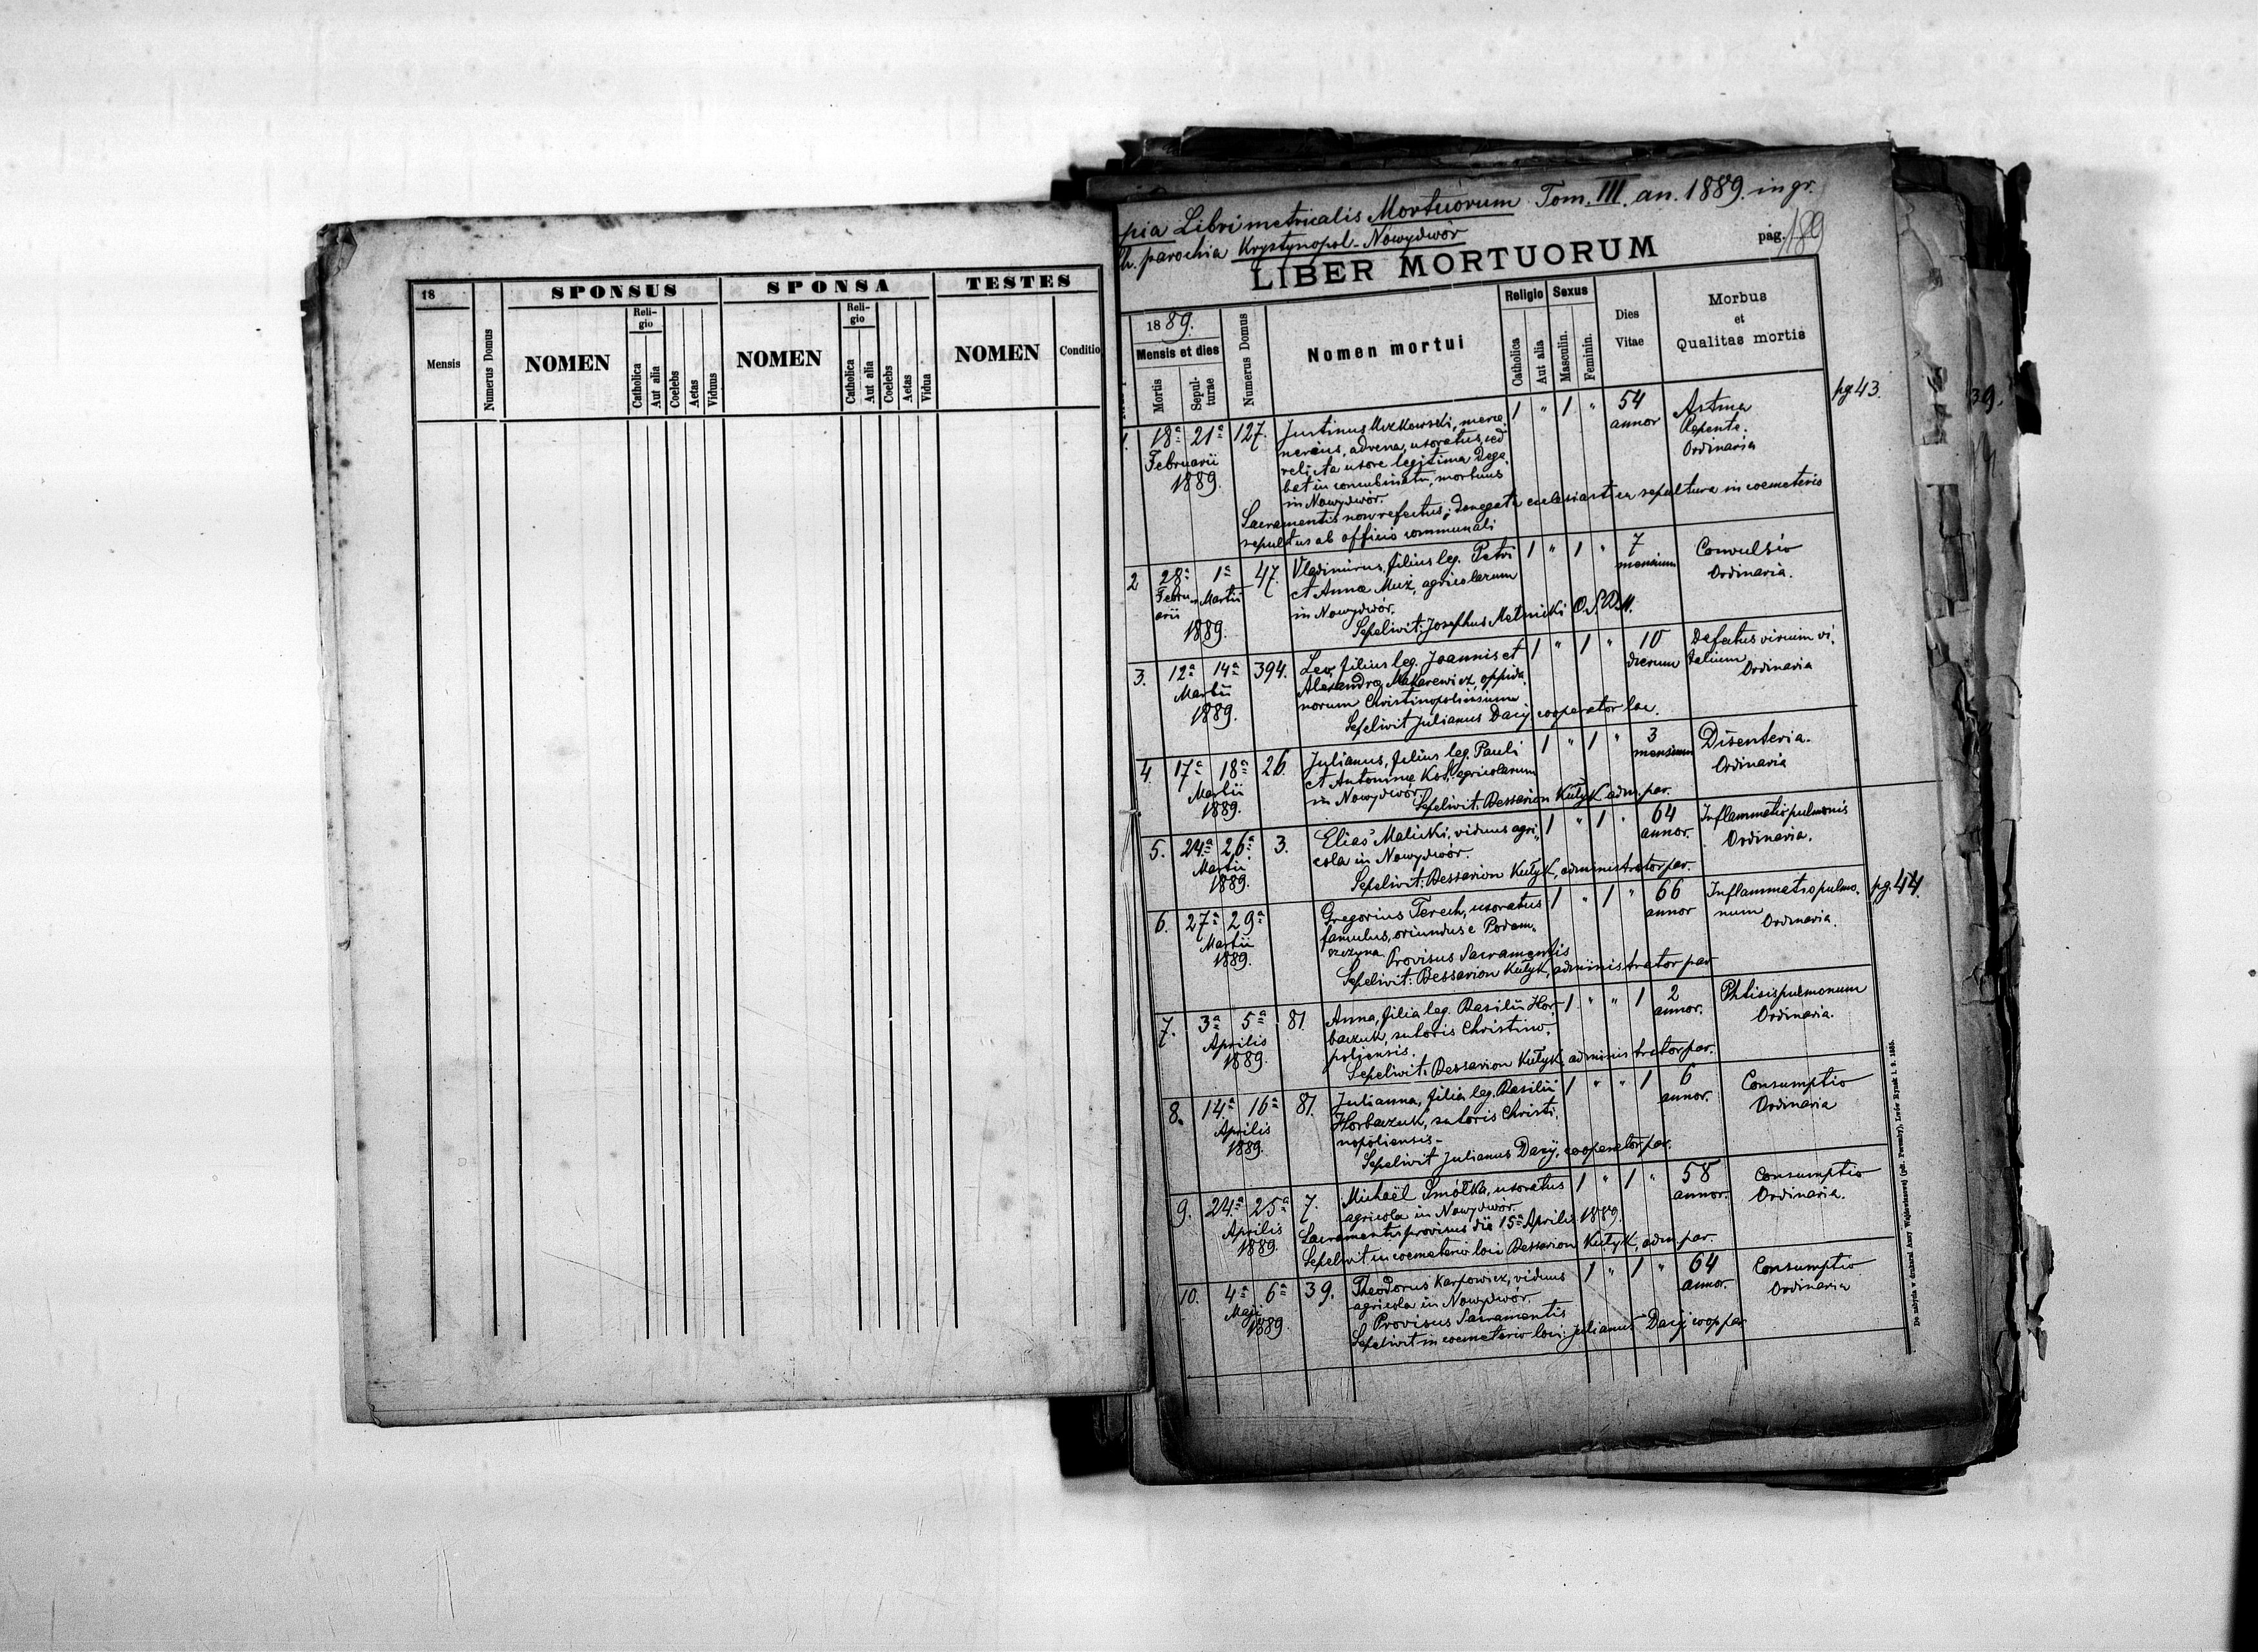 18
SPONSUS
SPONSA
TESTES
Mensis
Numerus Domus
NOMEN
Religio
Catholica
Aut alia
Coelebs
Aetas
Viduus
NOMEN
Religio
Catholica
Aut alia
Coelebs
Aetas
Vidua
NOMEN
Conditio
pia Libri metricalis Mortuorum Tom. III. an. 1889. in gr.
h. parochia Krystynopol-Nowydwór
pag. 189
LIBER MORTUORUM
1889.
Mensis et dies
Mortis
Sepulturae
Numerus Domus
Nomen mortui
Religio
Catholica
Aut alia
Sexus
Masculin.
Feminin.
Dies Vitae
Morbus et Qualitas mortis
pg 43.
39.
1. 18ª 21ª 127. Justinus merce- 1 " 1 " 54 Astma
Februarii nerius, advena, uxoratus, sed annor Repente.
1889. relicta uxore legitima dege- Ordinaria
bat in concubinatu, mortuus
in Nowydwór.
Sacramentis non refectus; denegata ecclesiastica sepultura in coemeterio
sepultus ab officio communali
2 28ª 1ª 47. Vladimirus, filius leg. Petri 1 " 1 " 7 Convulsio
Febru- Martii et Annae Muż, agricolarum mensium Ordinaria.
arii in Nowydwór.
1889. Sepelivit: Josephus Melnicki O.S.B.M.
3. 12ª 14ª 394. Leo, filius leg. Joannis et 1 " 1 " 10 Defectus virium vi-
Martii Alexandrae Makarewicz, oppida- dierum talium
1889. norum Christinopoliensium Ordinaria
Sepelivit Julianus Dacij cooperator loc.
4. 17ª 18ª 26. Julianus, filius leg. Pauli 1 " 1 " 3 Disenteria.
Martii et Antoninae Kot, agricolarum mensium Ordinaria
1889. in Nowydwór.
Sepelivit: Bessarion Kułyk adm. par.
5. 24ª 26ª 3. Elias Malicki, viduus agri- 1 " 1 " 64 Inflammatio pulmonis
Martii cola in Nowydwór. annor. Ordinaria.
1889. Sepelivit: Bessarion Kułyk, administrator par.
6. 27ª 29ª Gregorius Terech, uxoratus 1 " 1 " 66 Inflammatio pulmo- pg. 44.
Martii famulus, oriundus e Podem- annor num
1889. szczyna Provisus Sacramentis Ordinaria.
Sepelivit: Bessarion Kułyk, administrator par
7. 3ª 5ª 81. Anna, filia leg. Basilii Hor- 1 " " 1 2 Phtisis pulmonum
Aprilis baczuk, sutoris Christino- annor. Ordinaria.
1889. poliensis.
Sepelivit: Bessarion Kułyk administrator par.
8. 14ª 16ª 81. Julianna, filia leg. Basilii 1 " " 1 6 Consumptio
Aprilis Horbaczuk, sutoris Christi- annor. Ordinaria
1889. nopoliensis-
Sepelivit Julianus Dacij, cooperator par.
9. 24ª 25ª 7. Michaël Smółka, uxoratus 1 " 1 " 58 Consumptio
Aprilis agricola in Nowydwór. annor. Ordinaria.
1889. Sacramentis provisus die 15ª Aprilis 1889.
Sepelivit in coemeterio loci Bessarion Kułyk, adm. par.
10. 4ª 6ª 39. Theodorus Karpowicz, viduus 1 " 1 " 64 Consumptio
Maji agricola in Nowydwór. annor. Ordinaria
1889. Provisus Sacramentis
Sepelivit in coemeterio loci: Julianus Dacij coop par